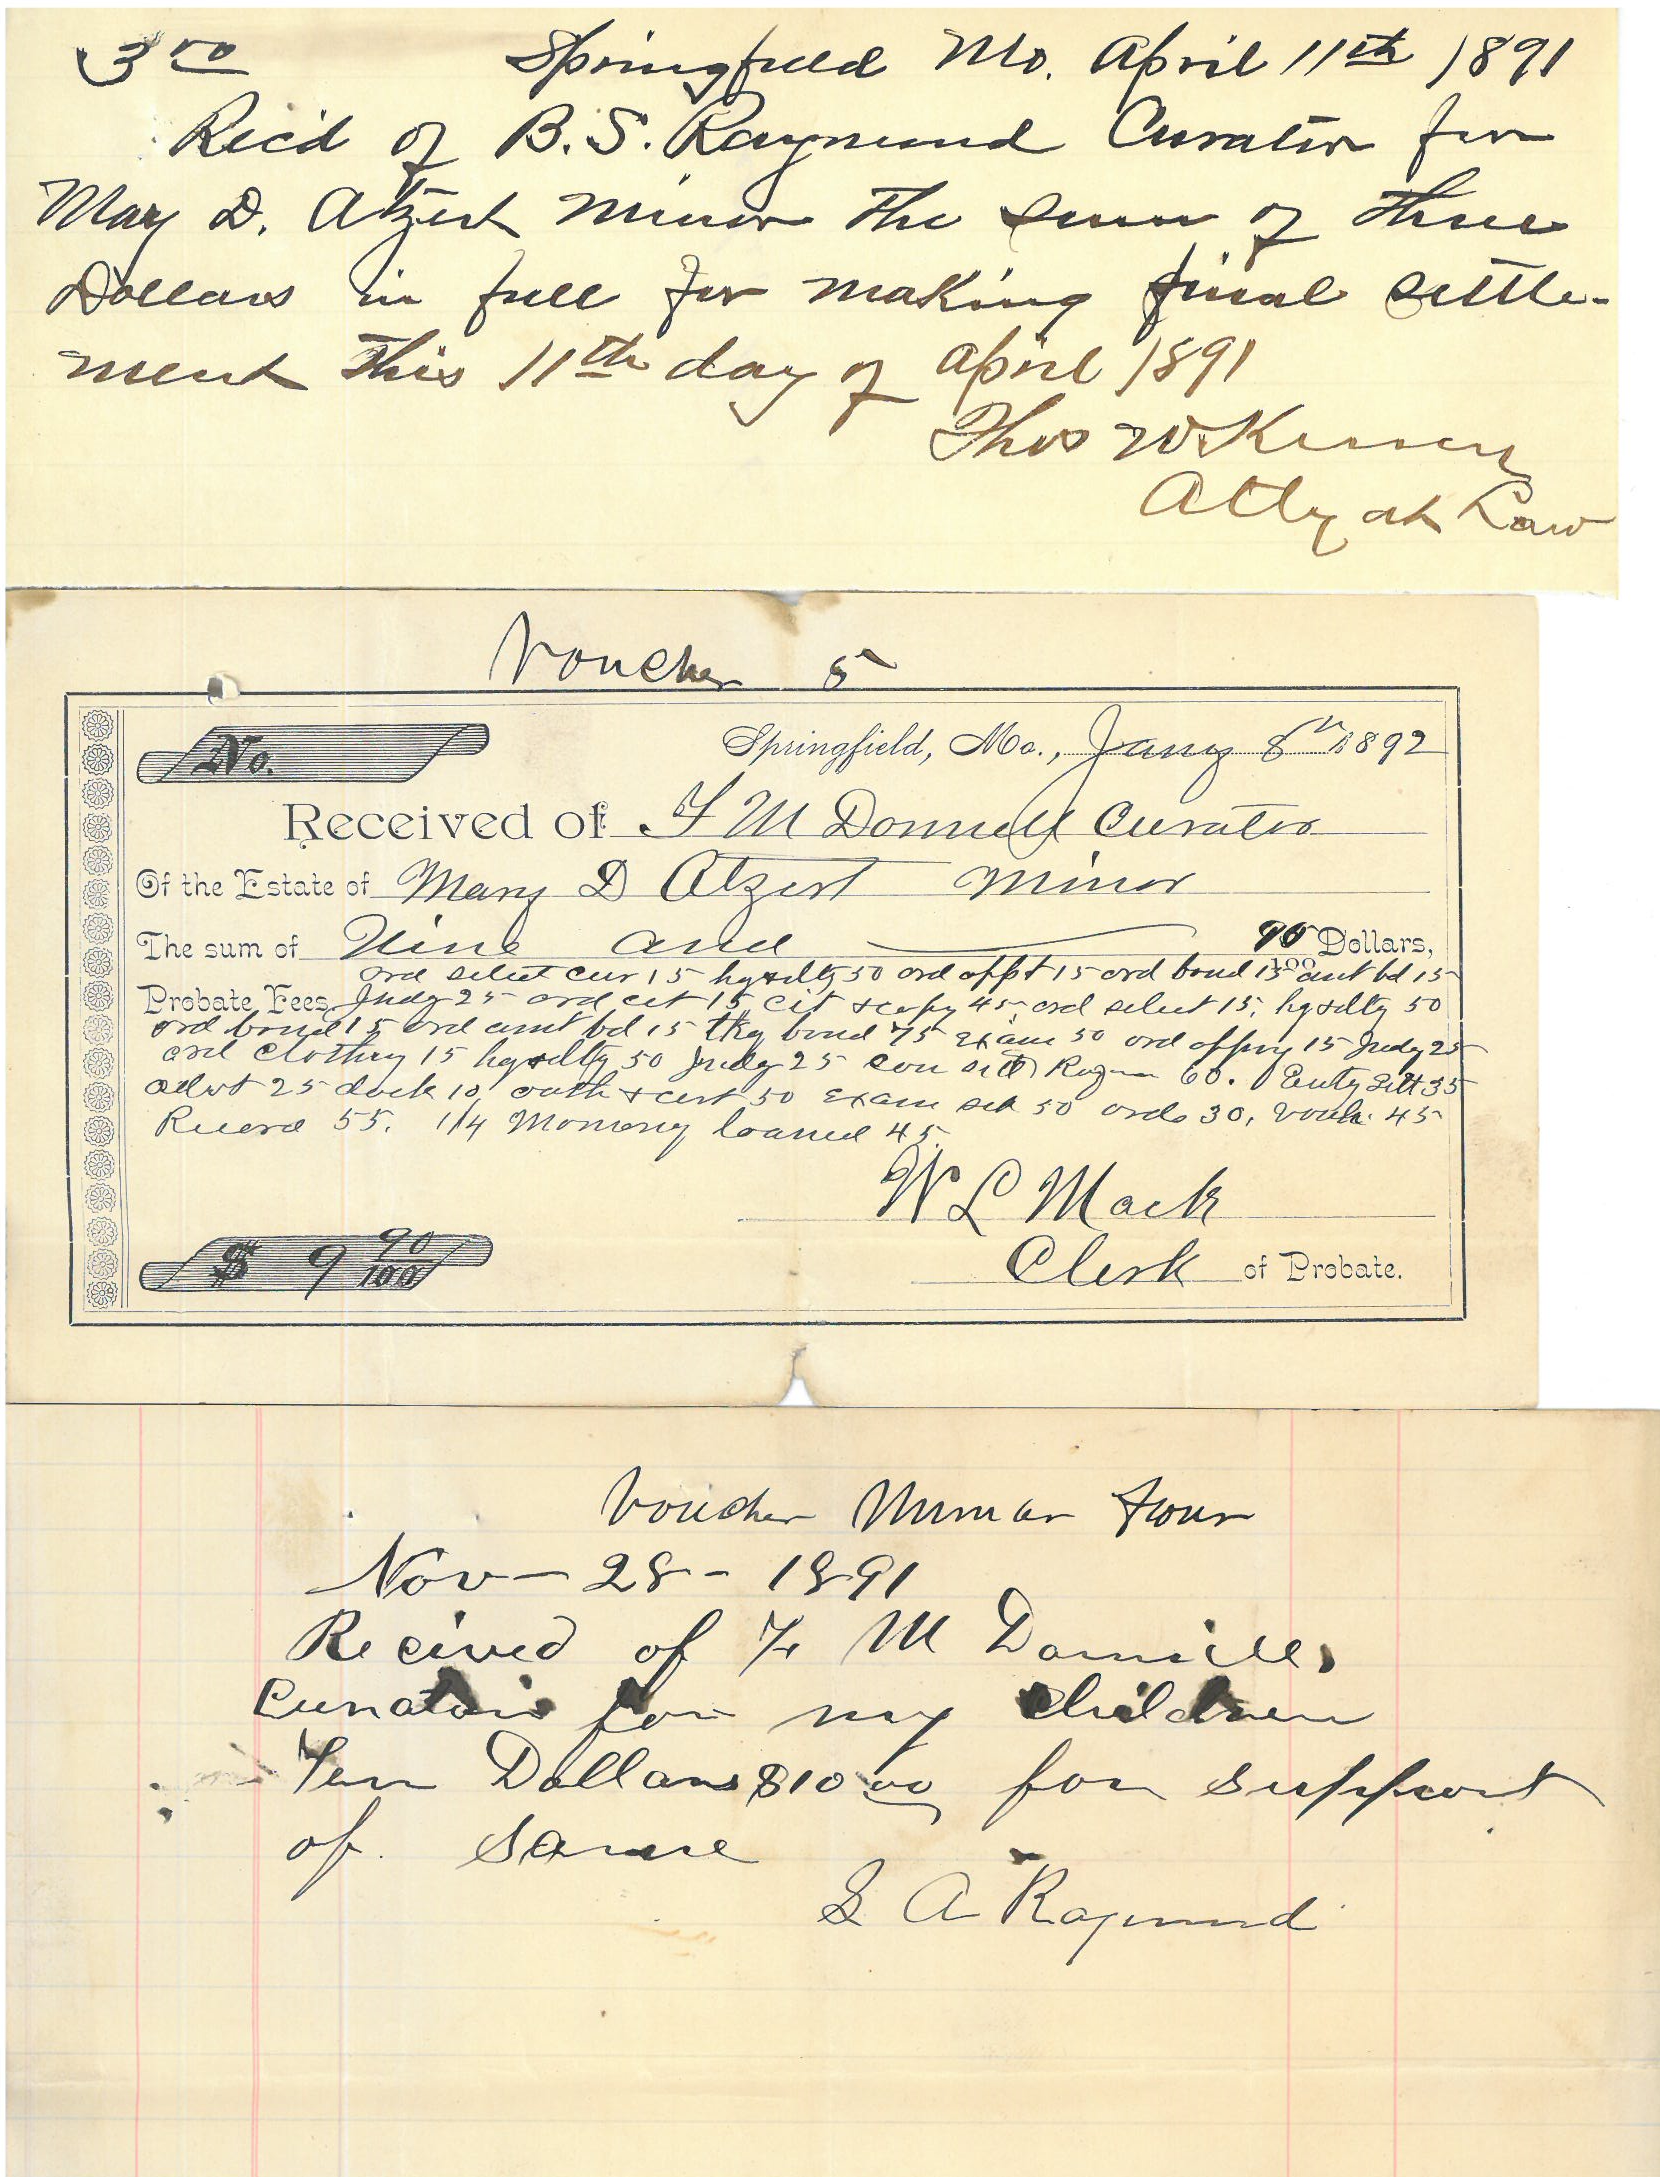 3 00 Springfield Mo. April 11th 1891
Rec'd of B. S. Raymond Curator for
May D. Atzert minor the sum of three
Dollars in full for making final settle-
ment this 11th day of April 1891
Thos W Kersey
Atty at Law
Voucher 5
No.
Springfield, Mo., Jany 8th 1892
Received of F M Donnell Curator
Of the Estate of Mary D Atzert Minor
The sum of Nine and 90/100 Dollars,
ord select cur 15 hg & dltg 50 ord appt 15 ord bond 15 amt bd 15
Probate Fees Judg 25 ord cit 15 cit & copy 45, ord select 15, hg & dltg 50
ord bond 15 ord amt bd 15 tkg bond 75 exam 50 ord appvg 15 Judg 25
ord clothing 15 hg & dltg 50 Judg 25 con sett 60. Enty Sett 35
advt 25 dock 10, oath & cert 50 exam set 50 ords 30, vouch. 45
Record 55. 1/4 Momony loaned 45.
W L Mack
Clerk of Probate.
$ 9 90/100
Voucher Numar Four
Nov - 28 - 1891
Recived of F M Donnell,
Curator for my children
Ten Dollars $10 00 for support
of same
S A Raymond